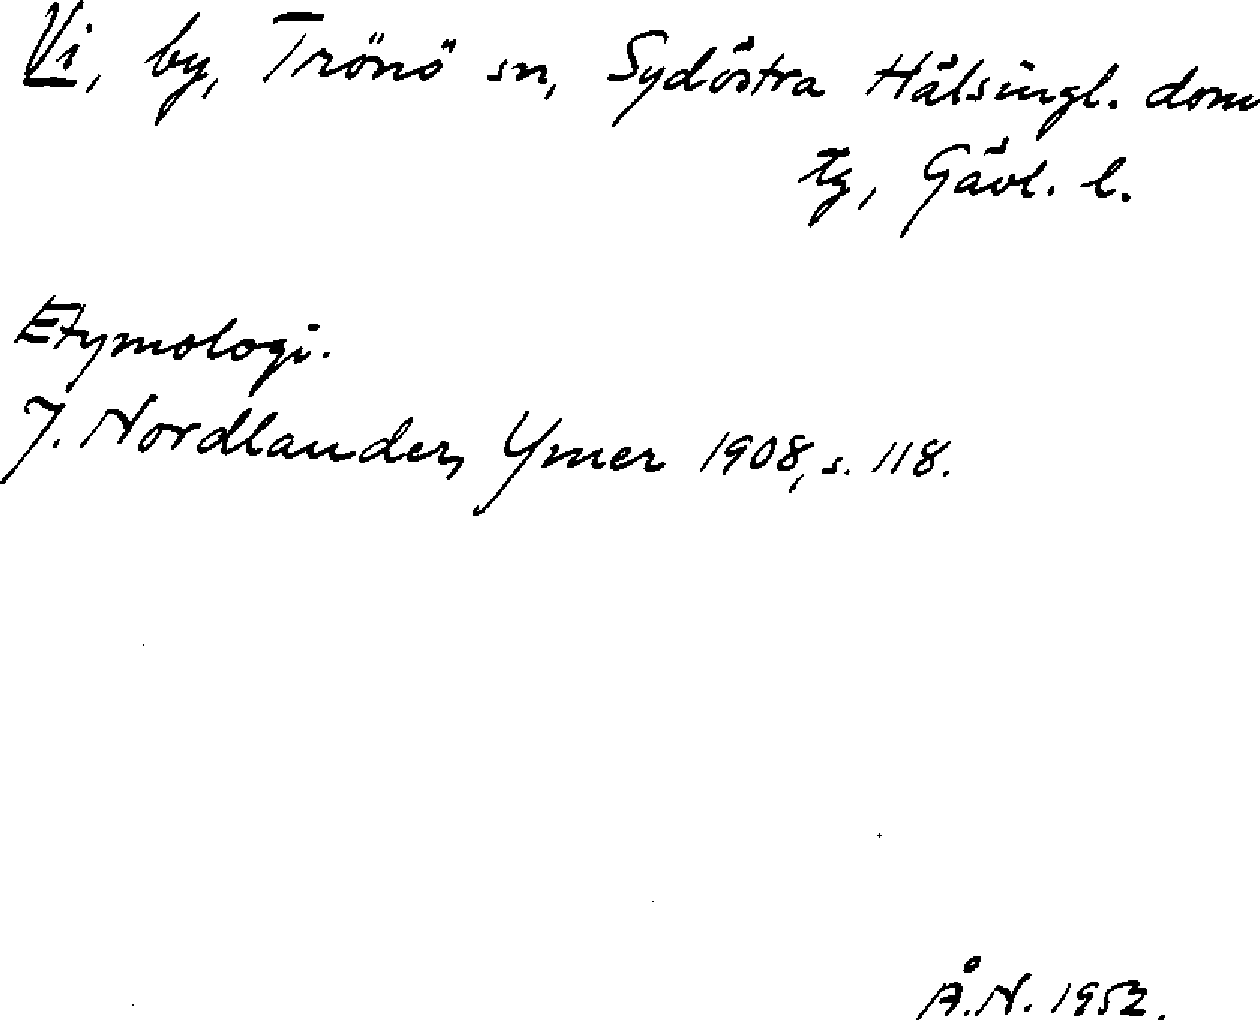 Vi, by, Trönö sn, Sydöstra Hälsingl. dom
tg, Gävl. l.
Etymologi.
J. Nordlander, Ymer 1908, s. 118.
Å.N. 1952.